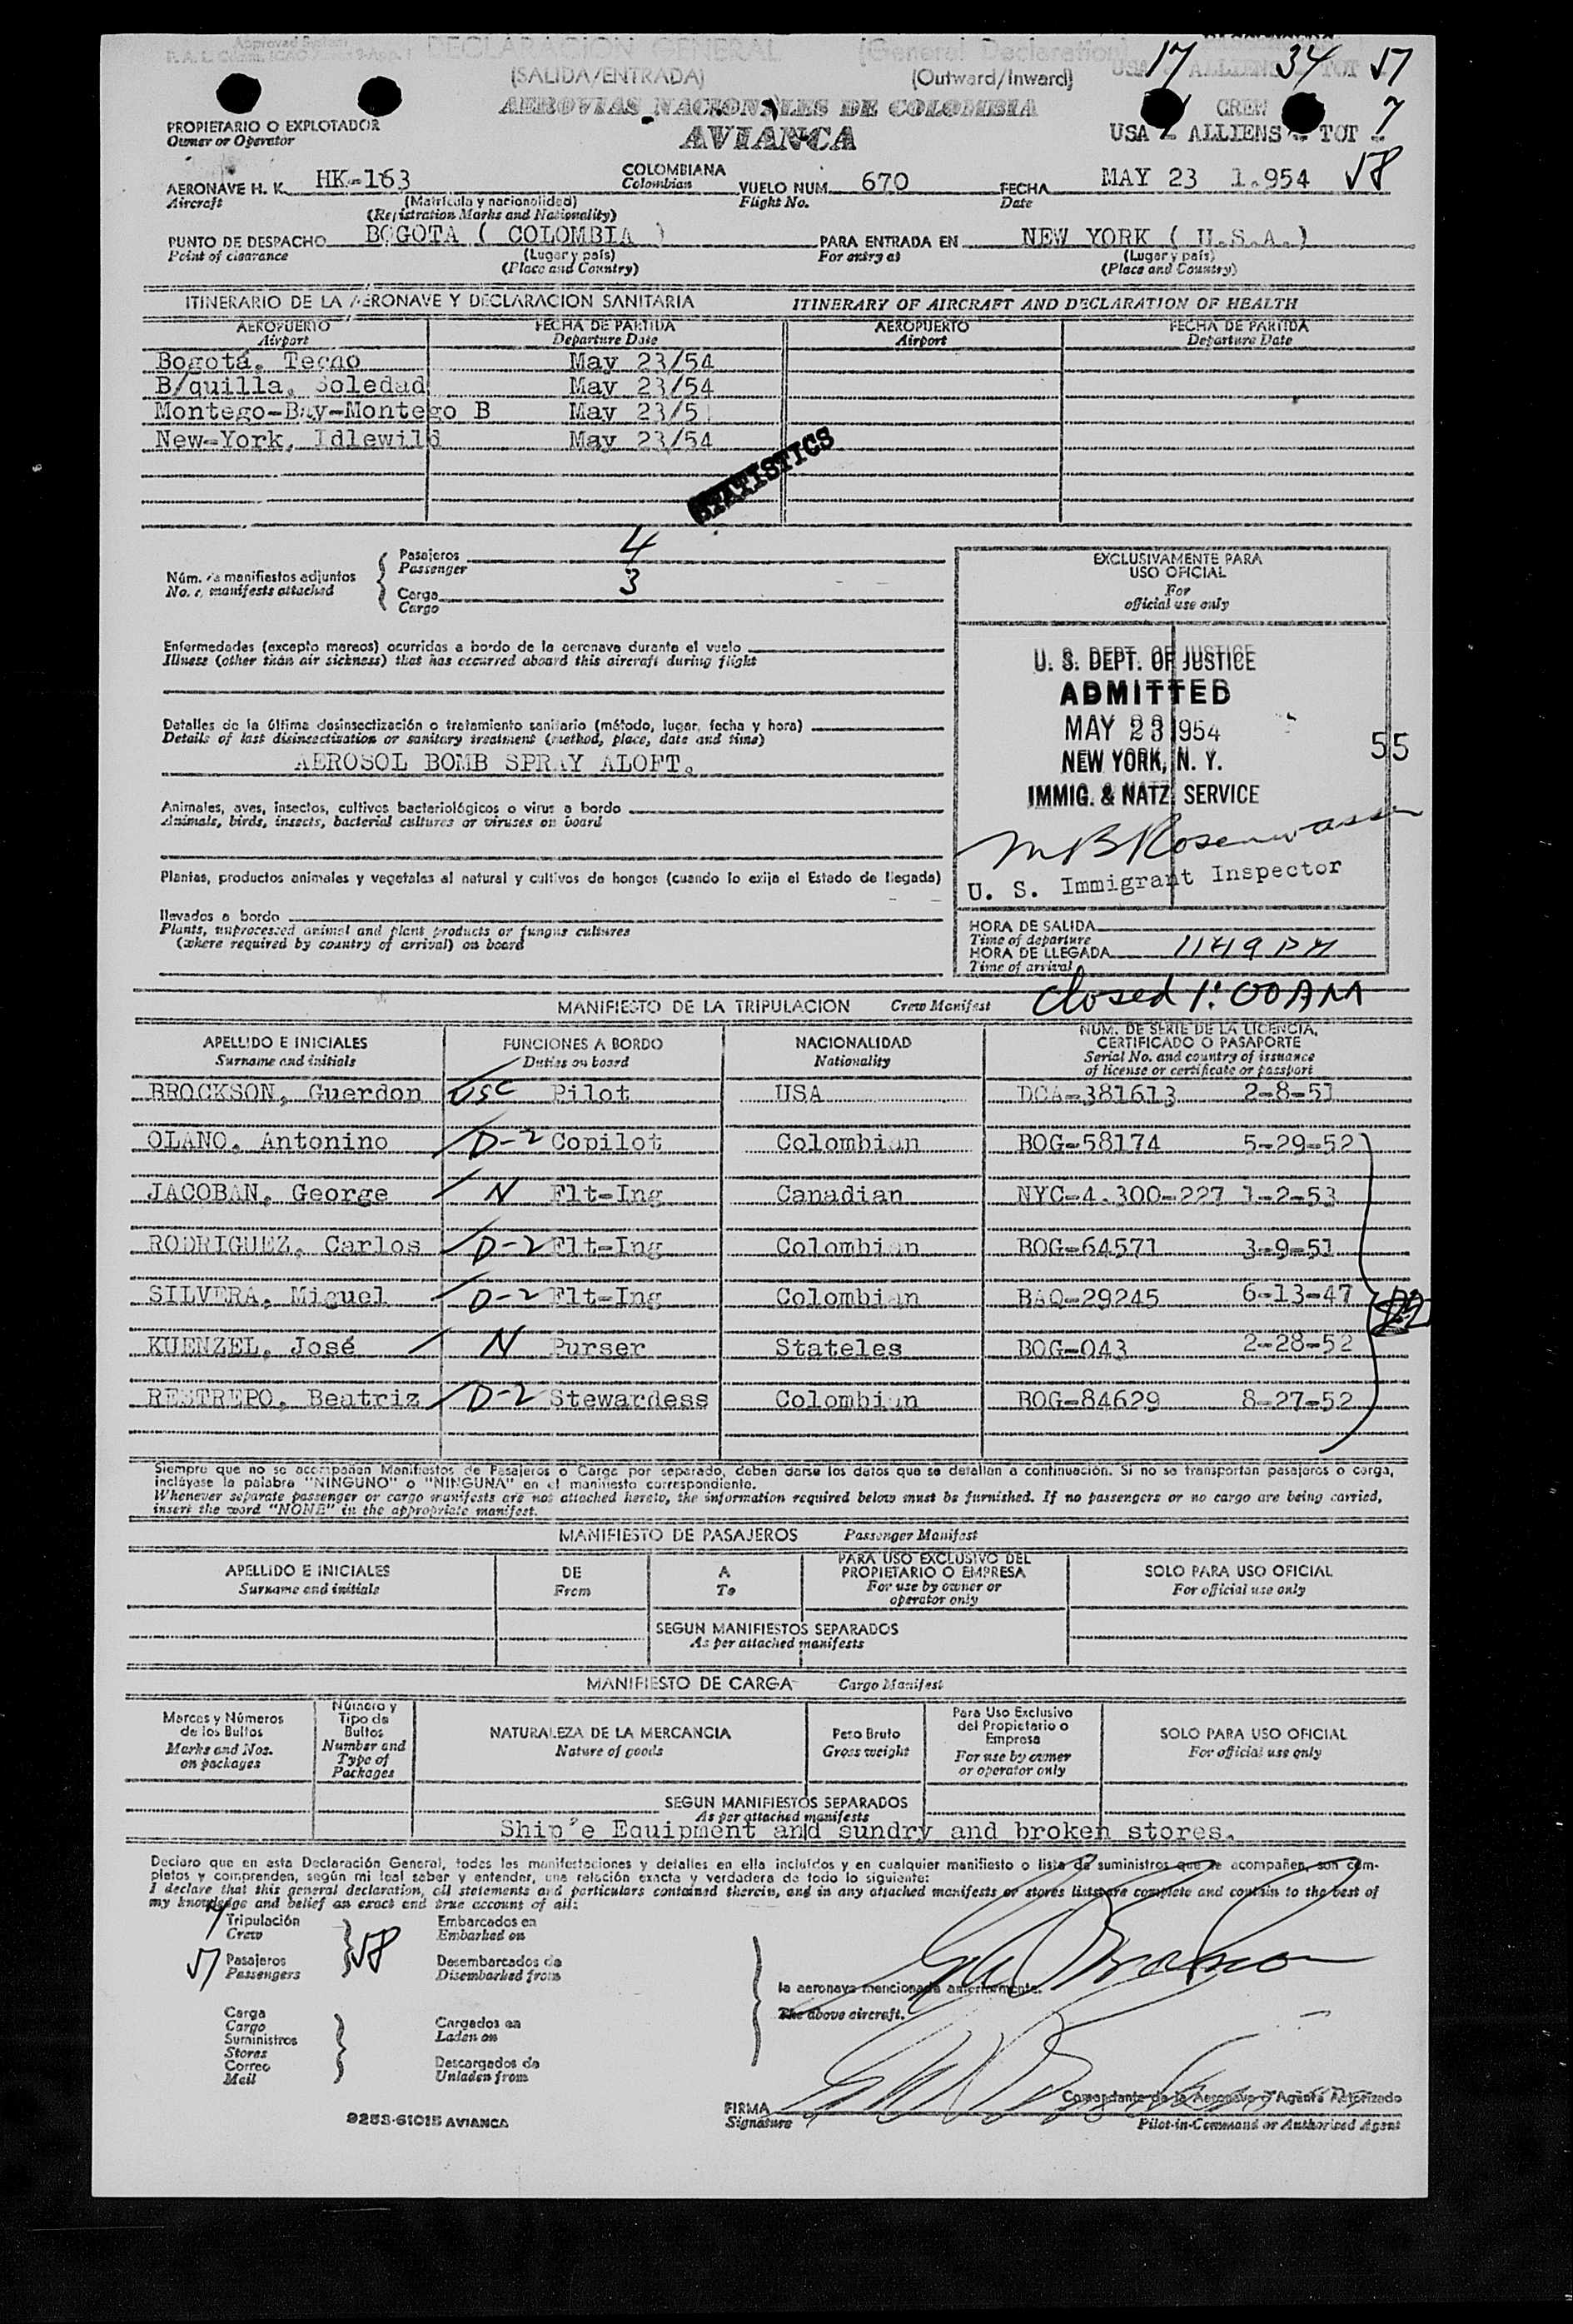 Approved System
DECLARACION GENERAL (General Declaration)
(SALIDA/ENTRADA) (Outward/Inward)
USA 17 ALLIENS 34 TOT 51
AEROVIAS NACIONALES DE COLOMBIA
AVIANCA
CREW
USA ALLIENS TOT 7
58
PROPIETARIO O EXPLOTADOR
Owner or Operator
AERONAVE H. K. HK-163 COLOMBIANA VUELO NUM. 670 FECHA MAY 23 1.954
Aircraft (Matrícula y nacionalidad) Colombian Flight No. Date
(Registration Marks and Nationality)
PUNTO DE DESPACHO BOGOTA ( COLOMBIA ) PARA ENTRADA EN NEW YORK ( U.S.A.)
Point of clearance (Lugar y país) For entry at (Lugar y país)
(Place and Country) (Place and Country)
ITINERARIO DE LA AERONAVE Y DECLARACION SANITARIA ITINERARY OF AIRCRAFT AND DECLARATION OF HEALTH
AEROPUERTO FECHA DE PARTIDA AEROPUERTO FECHA DE PARTIDA
Airport Departure Date Airport Departure Date
Bogotá, Tecno May 23/54
B/quilla, Soledad May 23/54
Montego-Bay-Montego B May 23/5
New-York, Idlewild May 23/54
STATISTICS
Núm. de manifiestos adjuntos
No. of manifests attached
Pasajeros 4
Passenger
Carga 3
Cargo
EXCLUSIVAMENTE PARA
USO OFICIAL
For
official use only
Enfermedades (excepto mareos) ocurridas a bordo de la aeronave durante el vuelo
Illness (other than air sickness) that has occurred aboard this aircraft during flight
Detalles de la última desinsectización o tratamiento sanitario (método, lugar, fecha y hora)
Details of last disinsectization or sanitary treatment (method, place, date and time)
AEROSOL BOMB SPRAY ALOFT.
Animales, aves, insectos, cultivos bacteriológicos o virus a bordo
Animals, birds, insects, bacterial cultures or viruses on board
Plantas, productos animales y vegetales al natural y cultivos de hongos (cuando lo exija el Estado de llegada)
llevados a bordo
Plants, unprocessed animal and plant products or fungus cultures
(where required by country of arrival) on board
U. S. DEPT. OF JUSTICE
ADMITTED
MAY 23 1954
NEW YORK, N. Y.
IMMIG. & NATZ. SERVICE
55
M B Rosenwasser
U. S. Immigrant Inspector
HORA DE SALIDA
Time of departure
HORA DE LLEGADA 1149 PM
Time of arrival
Closed 1:00 AM
MANIFIESTO DE LA TRIPULACION Crew Manifest
APELLIDO E INICIALES FUNCIONES A BORDO NACIONALIDAD NUM. DE SERIE DE LA LICENCIA, CERTIFICADO O PASAPORTE
Surname and initials Duties on board Nationality Serial No. and country of issuance of license or certificate or passport
BROCKSON, Guerdon USC Pilot USA DCA-381613 2-8-51
OLANO, Antonino D-2 Copilot Colombian BOG-58174 5-29-52
JACOBAN, George N Flt-Ing Canadian NYC-4.300-227 1-2-53
RODRIGUEZ, Carlos D-2 Flt-Ing Colombian BOG-64571 3-9-51
SILVERA, Miguel D-2 Flt-Ing Colombian BAQ-29245 6-13-47
KUENZEL, José N Purser Stateles BOG-043 2-28-52
RESTREPO, Beatriz D-2 Stewardess Colombian BOG-84629 8-27-52
Siempre que no se acompañen Manifiestos de Pasajeros o Carga por separado, deben darse los datos que se detallan a continuación. Si no se transportan pasajeros o carga,
inclúyase la palabra "NINGUNO" o "NINGUNA" en el manifiesto correspondiente.
Whenever separate passenger or cargo manifests are not attached hereto, the information required below must be furnished. If no passengers or no cargo are being carried,
insert the word "NONE" in the appropriate manifest.
MANIFIESTO DE PASAJEROS Passenger Manifest
APELLIDO E INICIALES DE A PARA USO EXCLUSIVO DEL PROPIETARIO O EMPRESA SOLO PARA USO OFICIAL
Surname and initials From To For use by owner or operator only For official use only
SEGUN MANIFIESTOS SEPARADOS
As per attached manifests
MANIFIESTO DE CARGA Cargo Manifest
Marcas y Números de los Bultos Número y Tipo de Bultos NATURALEZA DE LA MERCANCIA Peso Bruto Para Uso Exclusivo del Propietario o Empresa SOLO PARA USO OFICIAL
Marks and Nos. on packages Number and Type of Packages Nature of goods Gross weight For use by owner or operator only For official use only
SEGUN MANIFIESTOS SEPARADOS
As per attached manifests
Ship'e Equipment and sundry and broken stores.
Declaro que en esta Declaración General, todas las manifestaciones y detalles en ella incluídos y en cualquier manifiesto o lista de suministros que se acompañen, son com-
pletos y comprenden, según mi leal saber y entender, una relación exacta y verdadera de todo lo siguiente:
I declare that this general declaration, all statements and particulars contained therein, and in any attached manifests or stores lists are complete and contain to the best of
my knowledge and belief an exact and true account of all:
7 Tripulación Embarcados en
Crew Embarked on
51 Pasajeros 58 Desembarcados de
Passengers Disembarked from
la aeronave mencionada anteriormente.
The above aircraft.
Carga
Cargo Cargados en
Suministros Laden on
Stores
Correo Descargados de
Mail Unladen from
Comandante de la Aeronave o Agente Autorizado
FIRMA
Signature Pilot-in-Command or Authorised Agent
9253-61015 AVIANCA